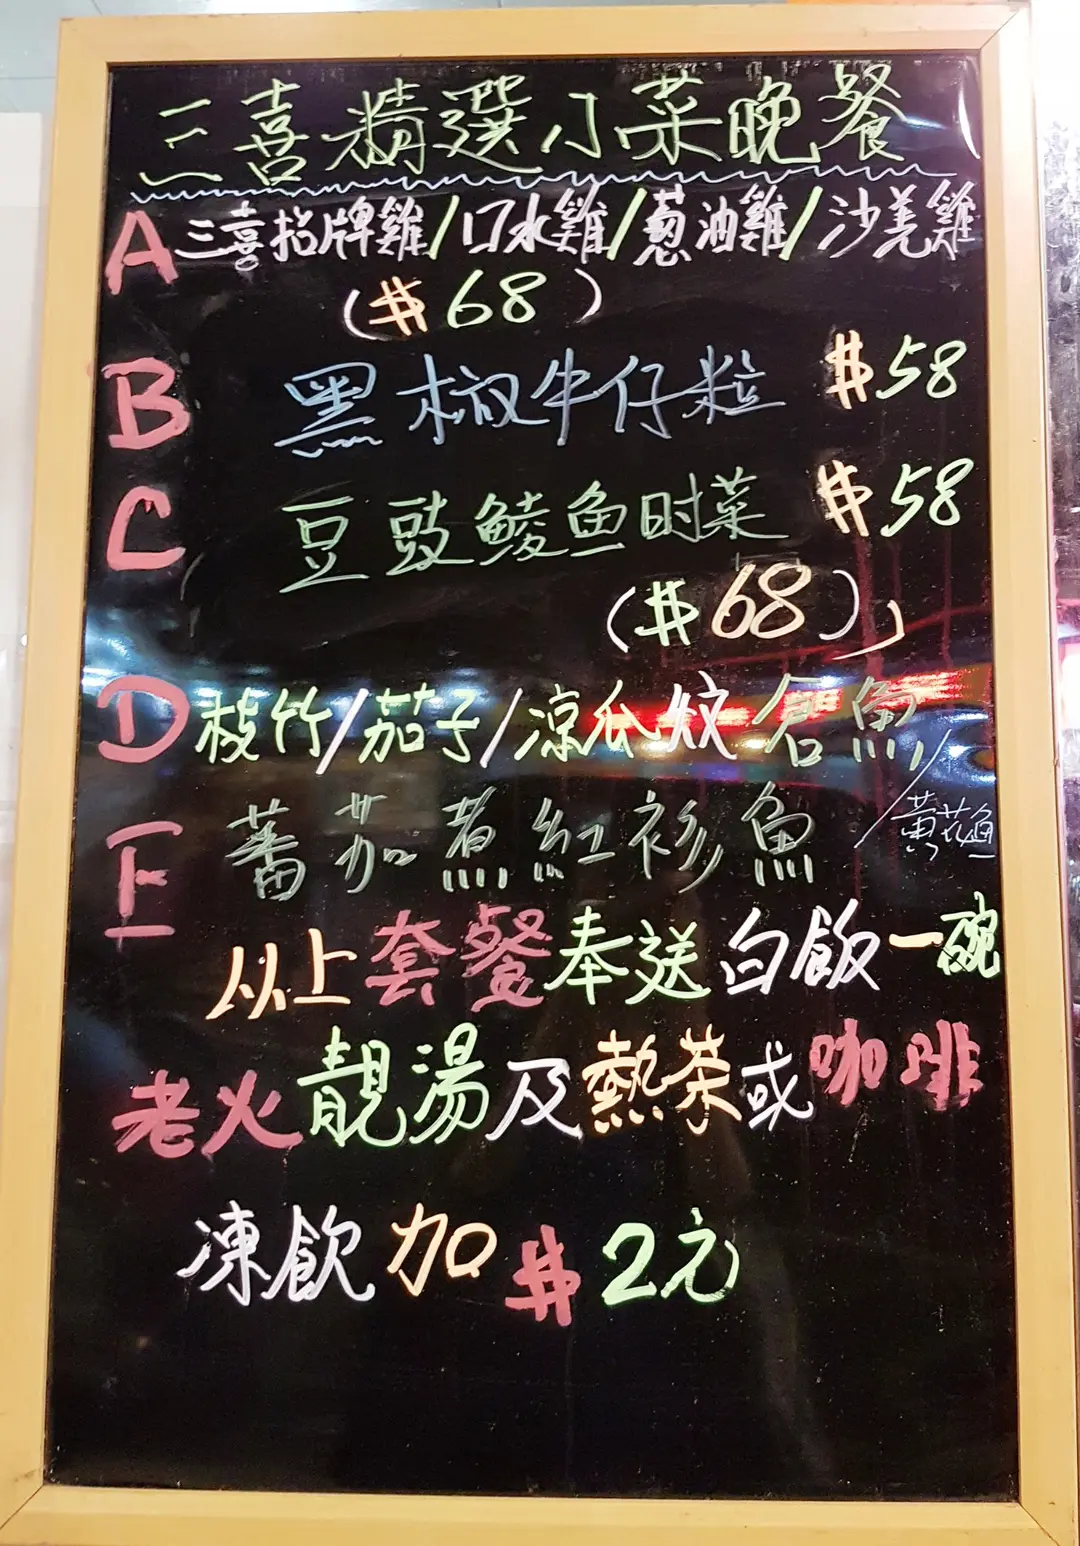 三喜精選小菜晚餐
A 三喜招牌雞/口水雞/蔥油雞/沙姜雞
($68)
B 黑椒牛仔粒 $58
C 豆豉鯪魚时菜 $58
($68)
D 枝竹/茄子/涼瓜炆倉魚/黃花魚
E 蕃茄煮紅衫魚
以上套餐奉送白飯一碗
老火靚湯及熱茶或咖啡
凍飲加$2元